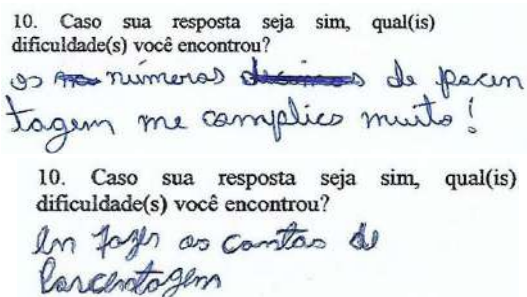 10. Caso sua resposta seja sim, qual(is)
dificuldade(s) você encontrou?
os números de pocen
tagem me complico muito!
10. Caso sua resposta seja sim, qual(is)
dificuldade(s) você encontrou?
En fazer as contas de
Porcentagem